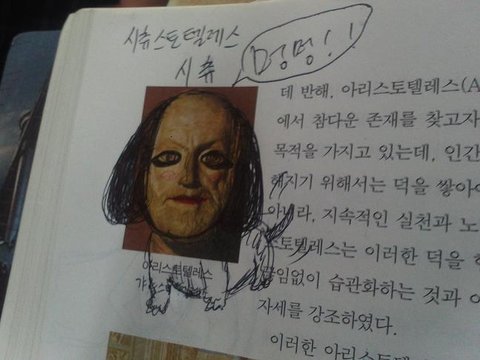 시츄스토텔레스
시츄
멍멍!!
데 반해, 아리스토텔레스(A
에서 참다운 존재를 찾고자
목적을 가지고 있는데, 인간
해지기 위해서는 덕을 쌓아야
아니라, 지속적인 실천과 노
스토텔레스는 이러한 덕을
끊임없이 습관화하는 것과
자세를 강조하였다.
이러한 아리스토텔
아리스토텔레스